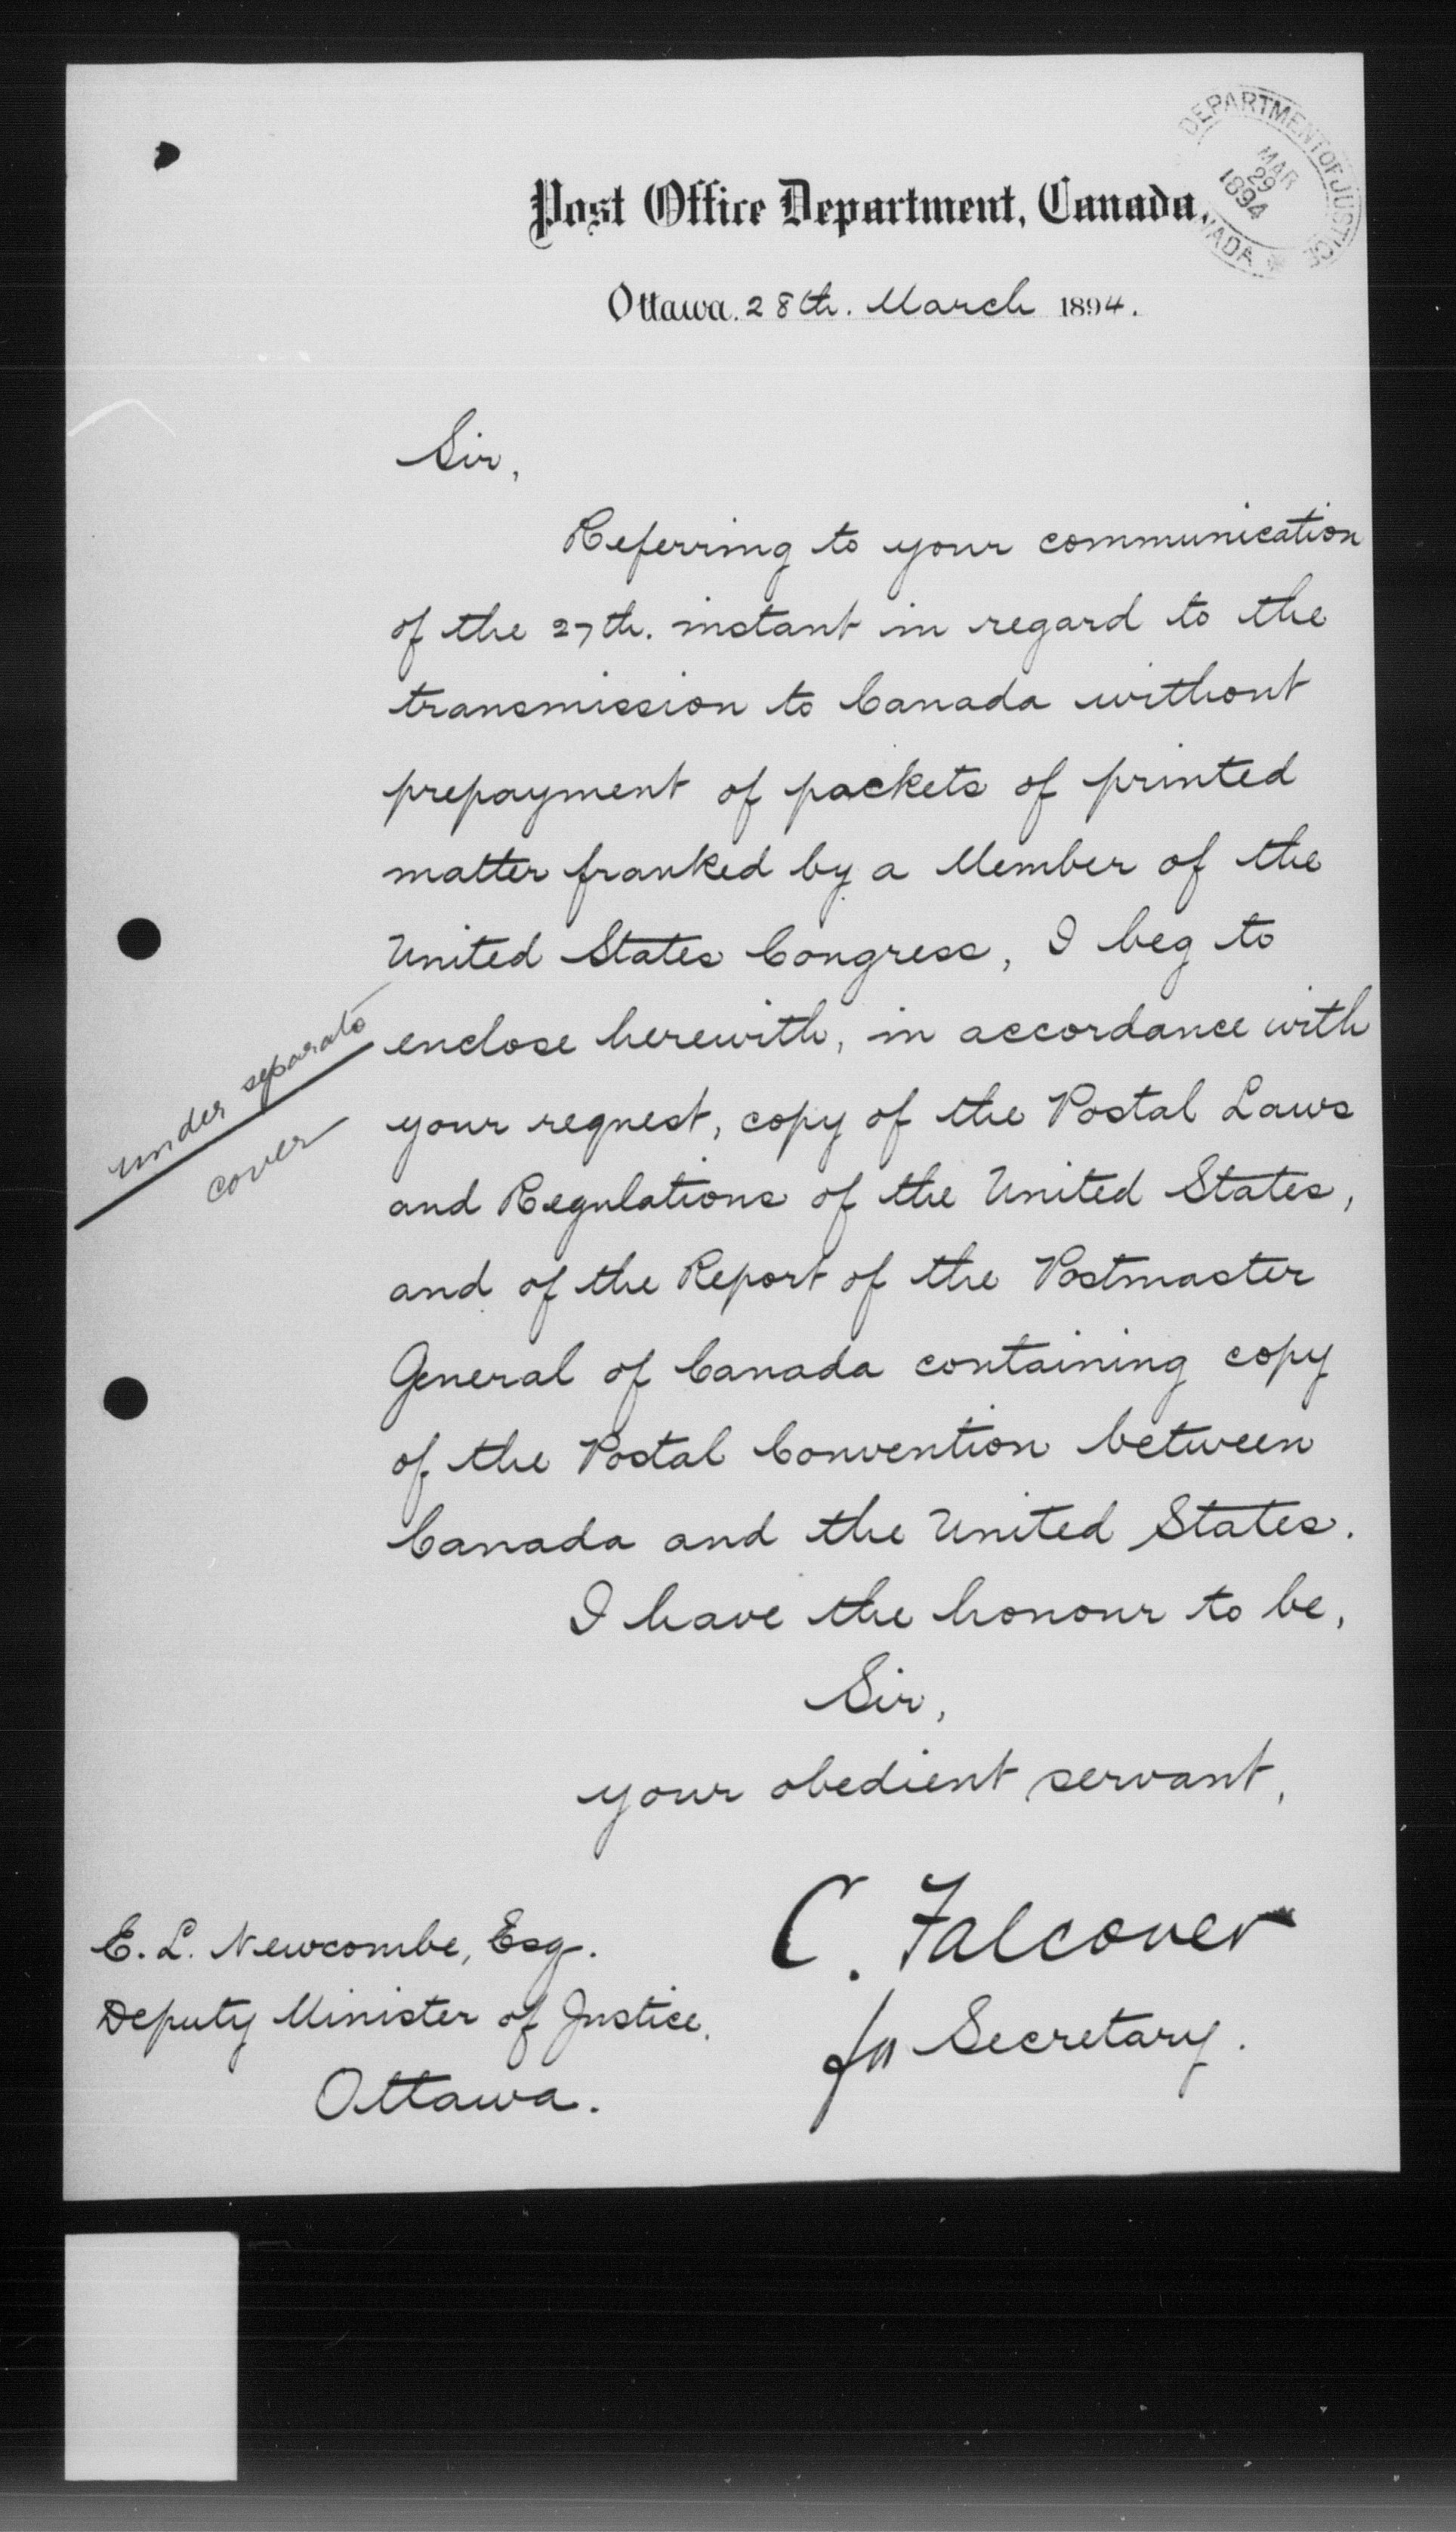 DEPARTMENT OF JUSTICE
MAR
29
1894
CANADA
Post Office Department, Canada,
Ottawa. 28th. March 1894.
Sir,
Referring to your communication
of the 27th. instant in regard to the
transmission to Canada without
prepayment of packets of printed
matter franked by a Member of the
United States Congress, I beg to
enclose herewith, in accordance with
under separate
cover
your request, copy of the Postal Laws
and Regulations of the United States,
and of the Report of the Postmaster
General of Canada containing copy
of the Postal Convention between
Canada and the United States.
I have the honour to be,
Sir,
your obedient servant,
C. Falconer
for Secretary.
E. L. Newcombe, Esq.
Deputy Minister of Justice.
Ottawa.